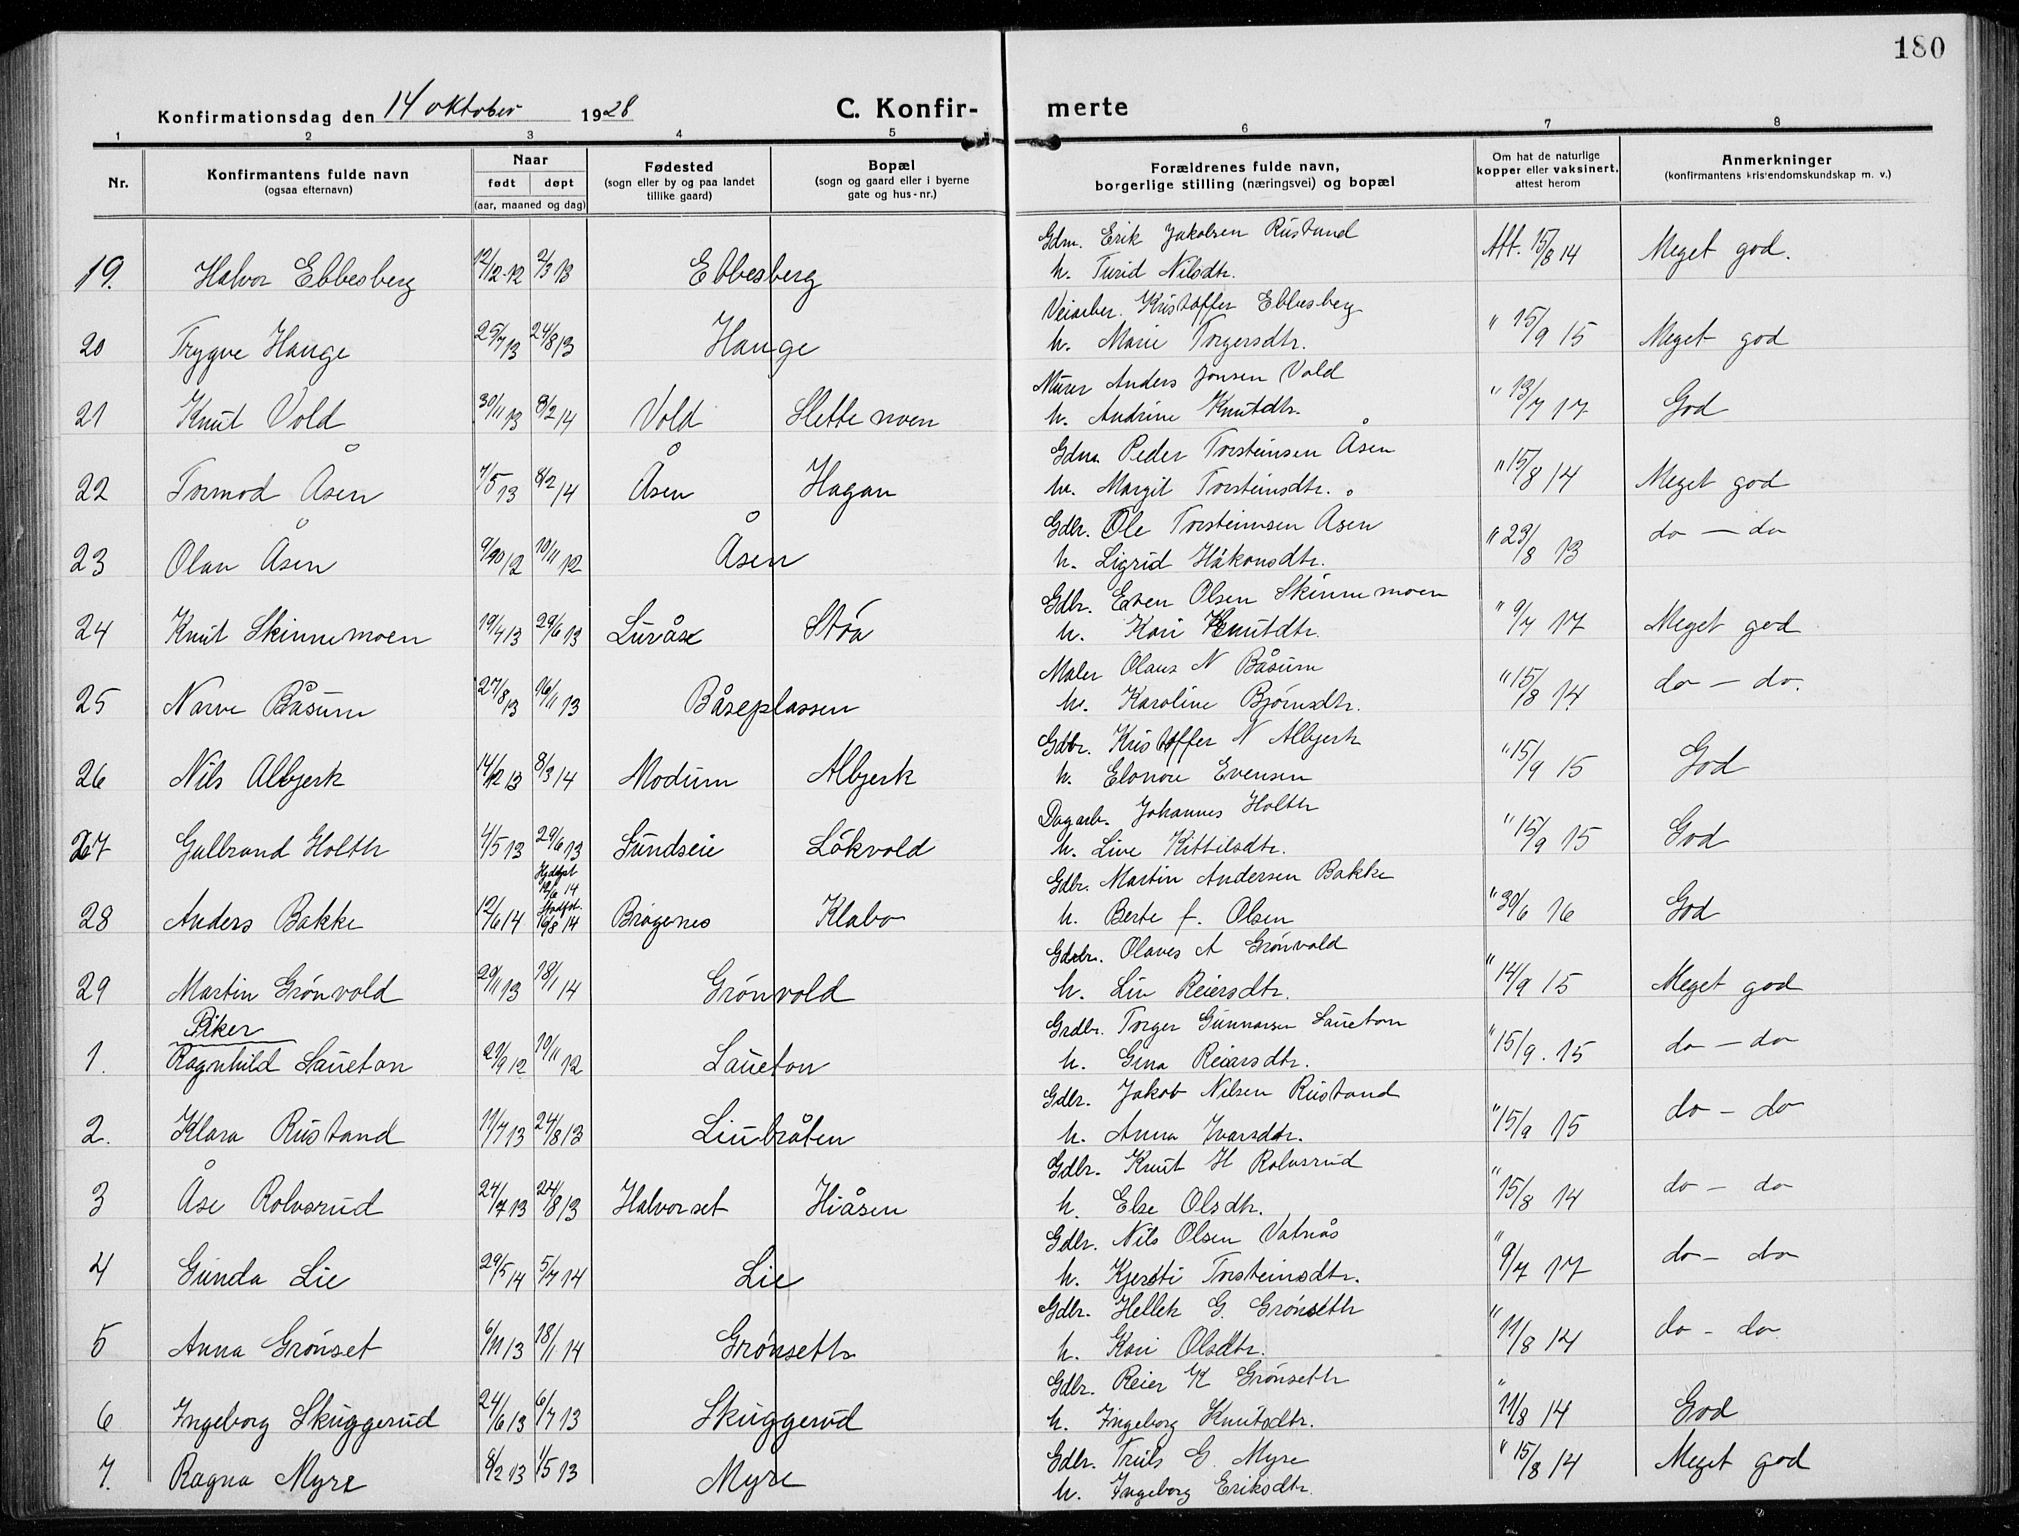 180
Konfirmationsdag den 14 oktober 1928
C. Konfirmerte
1 2 3 4 5 6 7 8
Nr.
Konfirmantens fulde navn
(ogsaa efternavn)
Naar
født døpt
(aar, maaned og dag)
Fødested
(sogn eller by og paa landet
tillike gaard)
Bopæl
(sogn og gaard eller i byerne
gate og hus-nr.)
Forældrenes fulde navn,
borgerlige stilling (næringsvei) og bopæl
Om hat de naturlige
kopper eller vaksinert,
attest herom
Anmerkninger
(konfirmantens kristendomskundskap m. v.)
Gdm. Erik Jakobsen Rustand
19. Halvor Ebbesberg 12/12-12 2/3 13 Ebbesberg h. Turid Nilsdtr. Att. 15/8 14 Meget god.
Veiarber. Kristoffer Ebbesberg
20 Trygve Hauge 25/7 13 24/8 13 Hauge h. Marie Torgersdtr. " 15/9 15 Meget god
Murer Anders Jonsen Vold
21 Knut Vold 30/11 13 8/2 14 Vold Slettemoen h. Andrine Knutdtr. " 13/7 17 God
Gdm. Peder Torsteinsen Åsen
22 Tormod Åsen 7/5 13 8/2 14 Åsen Hagan h. Margit Torsteinsdtr. " 15/8 14 Meget god
Gdbr. Ole Torsteinsen Åsen
23 Olav Åsen 9/10 12 10/11 12 Åsen h. Sigrid Håkonsdtr. " 23/8 13 do - do
Gdbr. Even Olsen Skinnemoen
24 Knut Skinnemoen 19/4 13 29/6 13 Luråsc Stöa h. Kari Knutdtr. " 9/7 17 Meget god
Maler Olaus N Båsum
25 Narve Båsum 27/8 13 16/11 13 Båseplassen h. Karoline Bjørnsdtr. " 15/8 14 do - do.
Gdbr. Kristoffer N Albjerk
26 Nils Albjerk 14/12 13 8/3 14 Modum Albjerk h. Elonore Evensen " 15/9 15 God
Dagarb. Johannes Holth
27 Gulbrand Holth 4/5 13 29/6 13 Sundseie Lökvold h. Live Kittilsdtr. " 15/9 15 God
Hjdøpt 12/6 14
Gdbr. Martin Andersen Bakke
28 Anders Bakke 12/6 14 Stadfst. 16/8 14 Bragenes Klabo h. Berte f. Olsen " 30/6 16 God
Gdbr. Olaves A Grönvold
29 Martin Grönvold 29/11 13 18/1 14 Grönvold h. Liv Reiersdtr. " 14/9 15 Meget god
Piker
Grdbr. Torger Gunnarsen Saueton
1. Ragnhild Saueton 21/9 12 10/11 12 Saueton h. Gina Reiersdtr. " 15/9. 15 do - do
Gdbr. Jakob Nilsen Rustand
2. Klara Rustand 11/7 13 24/8 13 Liubråten h. Anna Ivarsdtr. " 15/9 15 do - do
Gdbr. Knut H Rolvsrud
3 Åse Rolvsrud 24/7 13 24/8 13 Halvorset Hiåsen h. Else Olsdtr. " 15/8 14 do - do
Gdbr. Nils Olsen Vatnås
4 Gunda Lie 29/5 14 5/7 14 Lie h. Kjersti Torsteinsdtr. " 9/7 17 do - do
Gdbr. Hellek G. Grönseth
5 Anna Grönset 6/11 13 18/1 14 Grönseth h. Kari Olsdtr. " 11/8 14 do - do
Gdbr. Reier K Grönseth
6 Ingeborg Skuggerud 24/6 13 6/7 13 Skuggerud h. Ingeborg Knutsdtr. " 11/8 14 God
Gdbr. Truls G. Myre
7. Ragna Myre 8/2 13 1/5 13 Myre h. Ingeborg Eriksdtr. " 15/8 14 Meget god